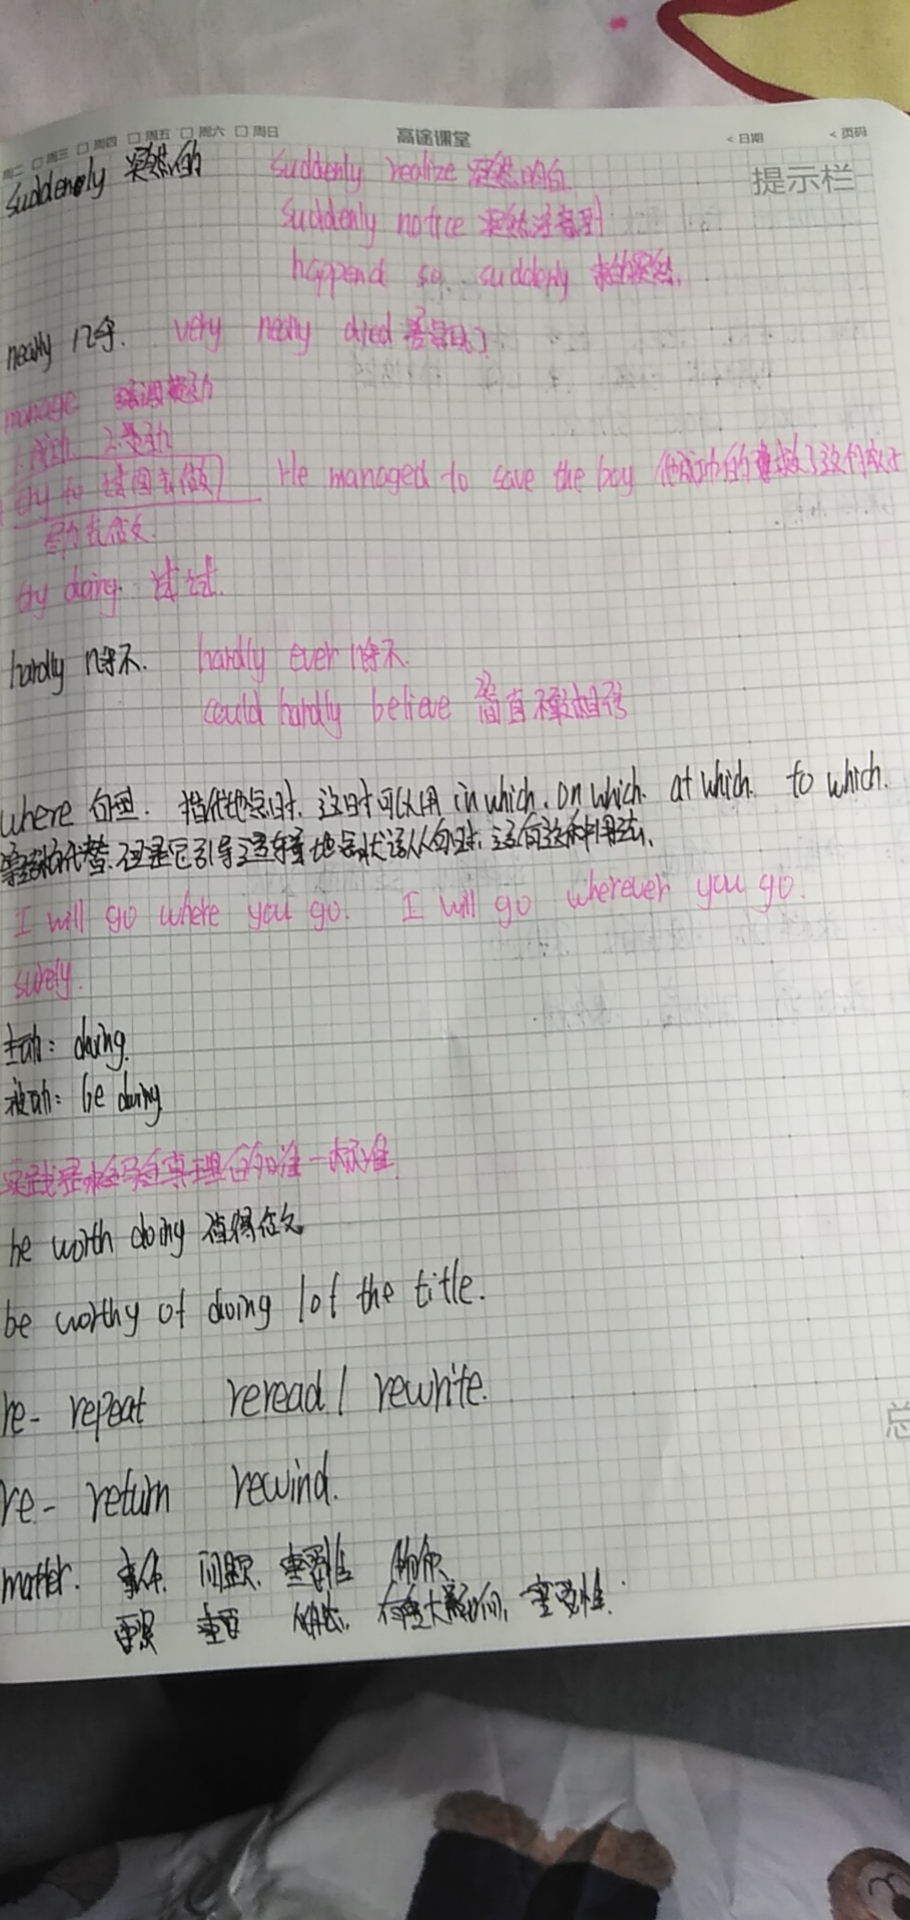 周二 □ 周三 □ 周四 □ 周五 □ 周六 □ 周日 高途课堂 < 日期 < 页码
提示栏
suddenly 突然的 suddenly realize 突然明白
suddenly notice 突然注意到
happend so suddenly 来的突然.
nearly 几乎. very nearly died 差点死了
manage 强调
1.成功 2.
try to 试图去做 He managed to save the boy 他成功的拯救了这个孩子
努力去做
try doing. 试试.
hardly 几乎不. hardly ever 几乎不.
could hardly believe 简直不敢相信
where 句型. 指代地点时. 这时可以用 in which. on which. at which. to which.
等结构代替. 但是它引导 地点状语从句时. 没有这种用法.
I will go where you go. I will go wherever you go.
surely.
主动: doing.
被动: be doing
实践是检验真理的唯一标准
be worth doing 值得做
be worthy of doing / of the title.
re- repeat reread / rewrite.
re- return rewind.
matter. 事件. 问题. 重要性 物质
重要 有重大影响. 重要性.
总